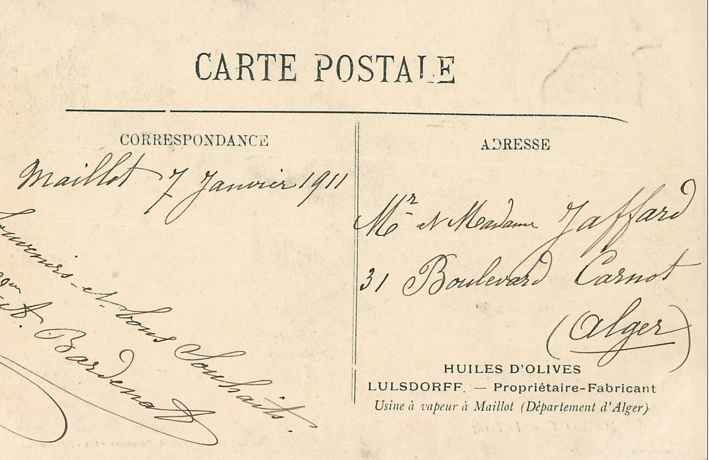 CARTE POSTALE
CORRESPONDANCE
Maillot 7 Janvier 1911
Souvenirs et bons Souhaits.
A. Bardenat
ADRESSE
Mr et Madame Jaffard
31 Boulevard Carnot
(Alger)
HUILES D'OLIVES
LULSDORFF. — Propriétaire-Fabricant
Usine à vapeur à Maillot (Département d'Alger)